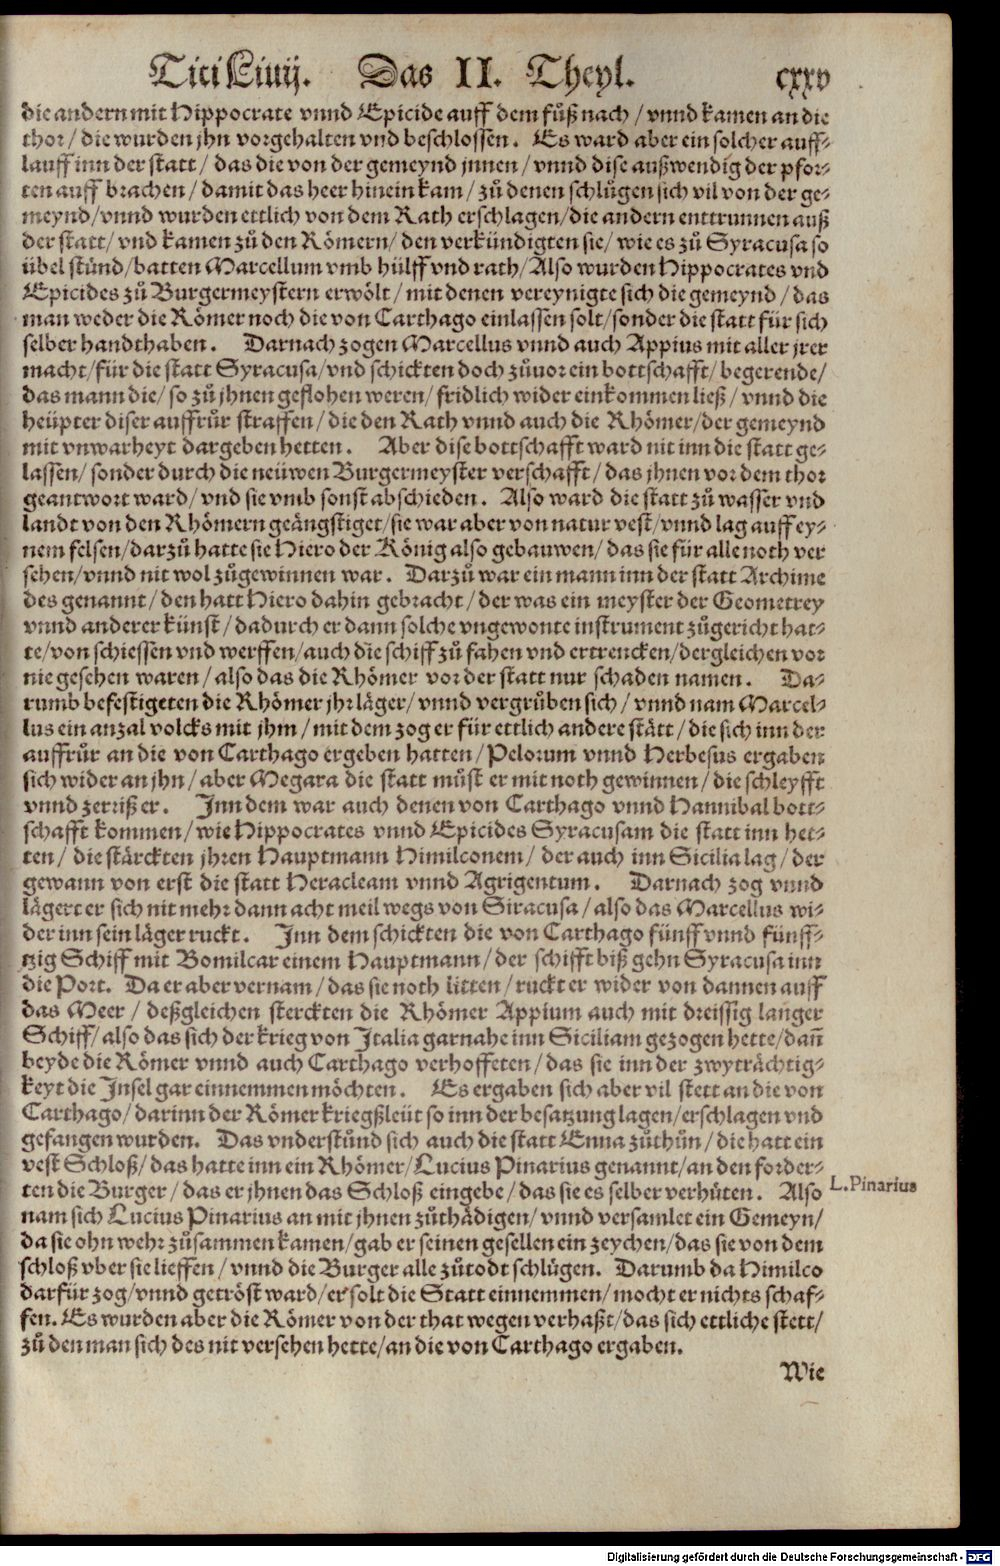 Titi Liuij. Das II. Theyl. cxxv
die andern mit Hippocrate vnnd Epicide auff dem fůß nach / vnnd kamen an die
thor / die wurden jhn vorgehalten vnd beschlossen. Es ward aber ein solcher auff⸗
lauff inn der statt / das die von der gemeynd jnnen / vnnd dise außwendig der pfor⸗
ten auff brachen / damit das heer hinein kam / zů denen schlůgen sich vil von der ge⸗
meynd / vnnd wurden ettlich von dem Rath erschlagen / die andern enttrunnen auß
der statt / vnd kamen zů den Römern / den verkündigten sie / wie es zů Syracusa so
übel stünd / batten Marcellum vmb hülff vnd rath / Also wurden Hippocrates vnd
Epicides zů Burgermeystern erwölt / mit denen vereynigte sich die gemeynd / das
man weder die Römer noch die von Carthago einlassen solt / sonder die statt für sich
selber handthaben. Darnach zogen Marcellus vnnd auch Appius mit aller jrer
macht / für die statt Syracusa / vnd schickten doch zůuor ein bottschafft / begerende /
das mann die / so zů jhnen geflohen weren / fridlich wider einkommen ließ / vnnd die
heüpter diser auffrůr straffen / die den Rath vnnd auch die Rhömer / der gemeynd
mit vnwarheyt dargeben hetten. Aber dise bottschafft ward nit inn die statt ge⸗
lassen / sonder durch die neüwen Burgermeyster verschafft / das jhnen vor dem thor
geantwort ward / vnd sie vmb sonst abschieden. Also ward die statt zů wasser vnd
landt von den Rhömern geängstiget / sie war aber von natur vest / vnnd lag auff ey⸗
nem felsen / darzů hatte sie Hiero der König also gebauwen / das sie für alle noth ver
sehen / vnnd nit wol zůgewinnen war. Darzů war ein mann inn der statt Archime
des genannt / den hatt Hiero dahin gebracht / der was ein meyster der Geometrey
vnnd anderer künst / dadurch er dann solche vngewonte instrument zůgericht hat⸗
te / von schiessen vnd werffen / auch die schiff zů fahen vnd ertrencken / dergleichen vor
nie gesehen waren / also das die Rhömer vor der statt nur schaden namen. Da⸗
rumb befestigeten die Rhömer jhr läger / vnnd vergrůben sich / vnnd nam Marcel⸗
lus ein anzal volcks mit jhm / mit dem zog er für ettlich andere stätt / die sich inn der
auffrůr an die von Carthago ergeben hatten / Pelorum vnnd Herbesus ergaben
sich wider an jhn / aber Megara die statt můst er mit noth gewinnen / die schleyfft
vnnd zerriß er. Inn dem war auch denen von Carthago vnnd Hannibal bott⸗
schafft kommen / wie Hippocrates vnnd Epicides Syracusam die statt inn het⸗
ten / die stärckten jhren Hauptmann Himilconem / der auch inn Sicilia lag / der
gewann von erst die statt Heracleam vnnd Agrigentum. Darnach zog vnnd
lägert er sich nit mehr dann acht meil wegs von Siracusa / also das Marcellus wi⸗
der inn sein läger ruckt. Inn dem schickten die von Carthago fünff vnnd fünff⸗
tzig Schiff mit Bomilcar einem Hauptmann / der schifft biß gehn Syracusa inn
die Port. Da er aber vernam / das sie noth litten / ruckt er wider von dannen auff
das Meer / deßgleichen sterckten die Rhömer Appium auch mit dreissig langer
Schiff / also das sich der krieg von Italia garnahe inn Siciliam gezogen hette / dañ
beyde die Römer vnnd auch Carthago verhoffeten / das sie inn der zwyträchtig⸗
keyt die Insel gar einnemmen möchten. Es ergaben sich aber vil stett an die von
Carthago / darinn der Römer kriegßleüt so inn der besatzung lagen / erschlagen vnd
gefangen wurden. Das vnderstůnd sich auch die statt Enna zůthůn / die hatt ein
vest Schloß / das hatte inn ein Rhömer / Lucius Pinarius genannt / an den forder⸗
ten die Burger / das er jhnen das Schloß eingebe / das sie es selber verhüten. Also
L. Pinarius
nam sich Lucius Pinarius an mit jhnen zůthädigen / vnnd versamlet ein Gemeyn /
da sie ohn wehr zůsammen kamen / gab er seinen gesellen ein zeychen / das sie von dem
schloß vber sie lieffen / vnnd die Burger alle zůtodt schlůgen. Darumb da Himilco
darfür zog / vnnd getröst ward / er solt die Statt einnemmen / mocht er nichts schaf⸗
fen. Es wurden aber die Römer von der that wegen verhaßt / das sich ettliche stett /
zů den man sich des nit versehen hette / an die von Carthago ergaben.
Wie
Digitalisierung gefördert durch die Deutsche Forschungsgemeinschaft - DFG